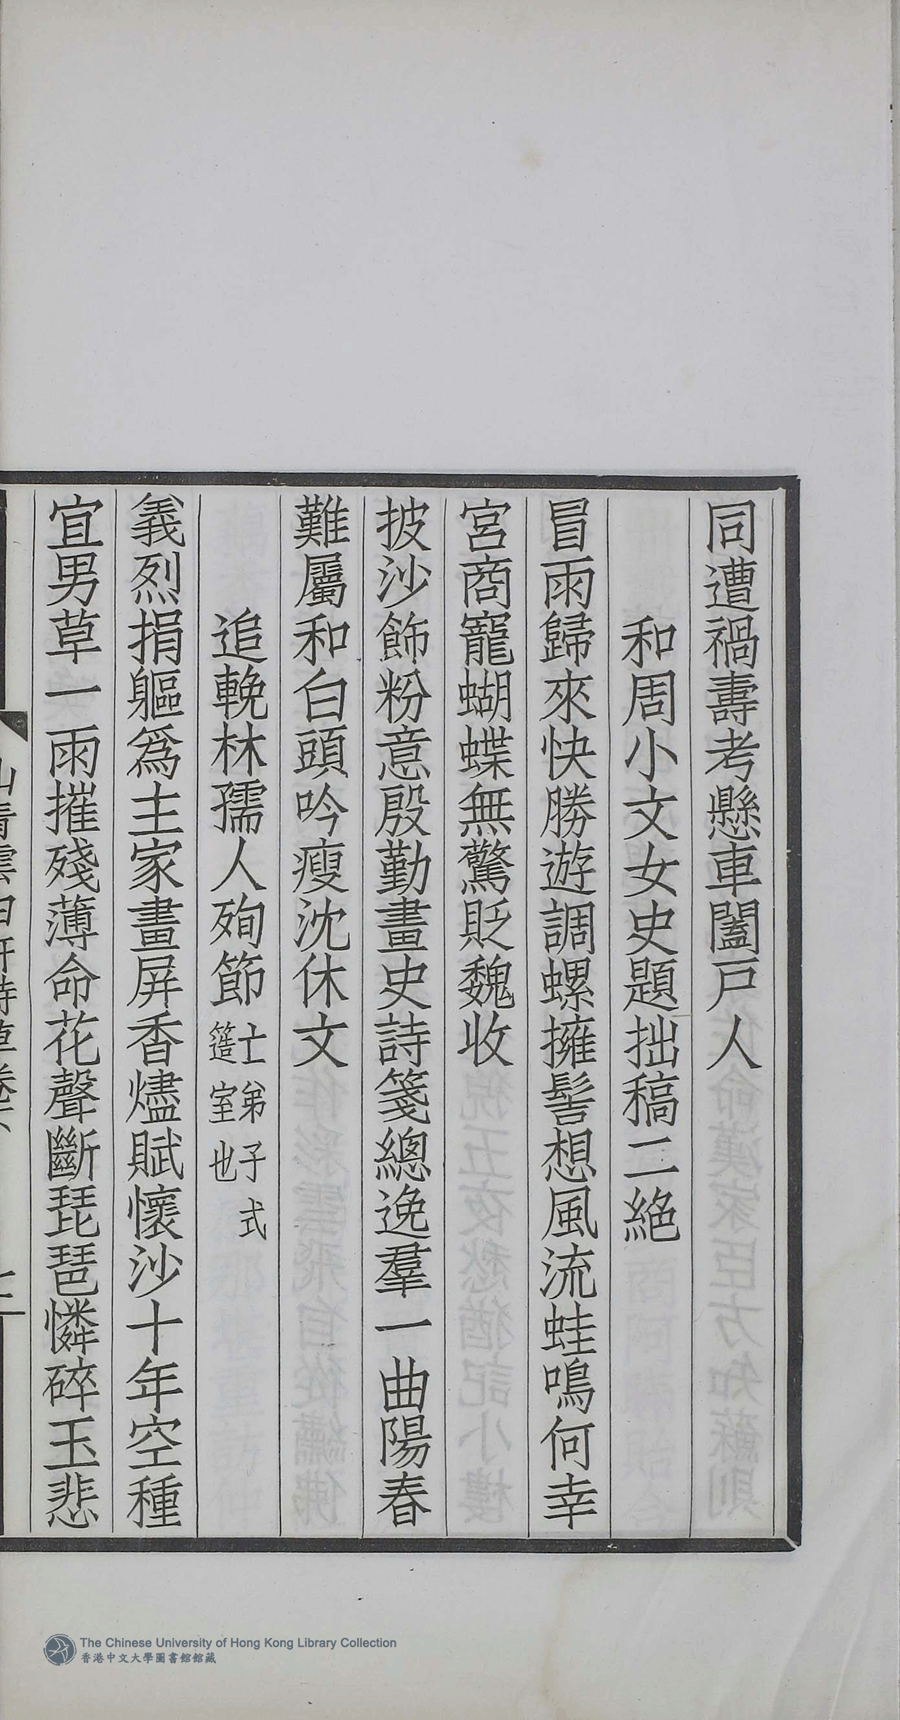 同遭禍壽考懸車闔戸人
和周小文女史題拙稿二絶
冒雨歸來快勝遊調螺擁髻想風流蛙鳴何幸
宮商寵蝴蝶無驚貶魏收
披沙飾粉意殷勤畫史詩箋總逸羣一曲陽春
難屬和白頭吟瘦沈休文
追輓林孺人殉節亡弟子式
簉室也
義烈捐軀爲主家畫屏香燼賦懷沙十年空種
宜男草一雨摧殘薄命花聲斷琵琶憐碎玉悲
The Chinese University of Hong Kong Library Collection
香港中文大學圖書館館藏